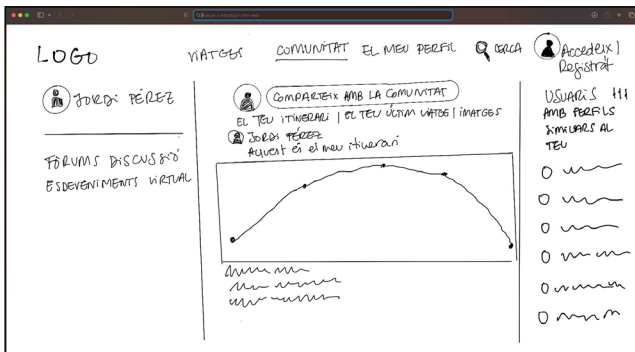 LOGO
VIATGES
COMUNITAT
EL MEU PERFIL
CERCA
Accedeix |
Registra't
JORDI PÉREZ
FÒRUMS DISCUSSIÓ
ESDEVENIMENTS VIRTUAL
COMPARTEIX AMB LA COMUNITAT
EL TEU ITINERARI | EL TEU ÚLTIM VIATGE | IMATGES
JORDI PÉREZ
Aquest és el meu itinerari
USUARIS
AMB PERFILS
SIMILARS AL
TEU